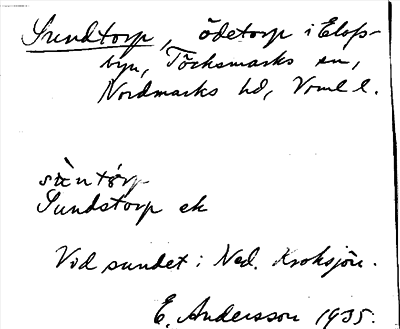 Sundtorp, ödetorp i Elofs-
byn, Töcksmarks sn,
Nordmarks hd, Vrml l.
sùntórp
Sundstorp ek
Vid sundet i Ned. Kroksjön.
E. Andersson 1935.